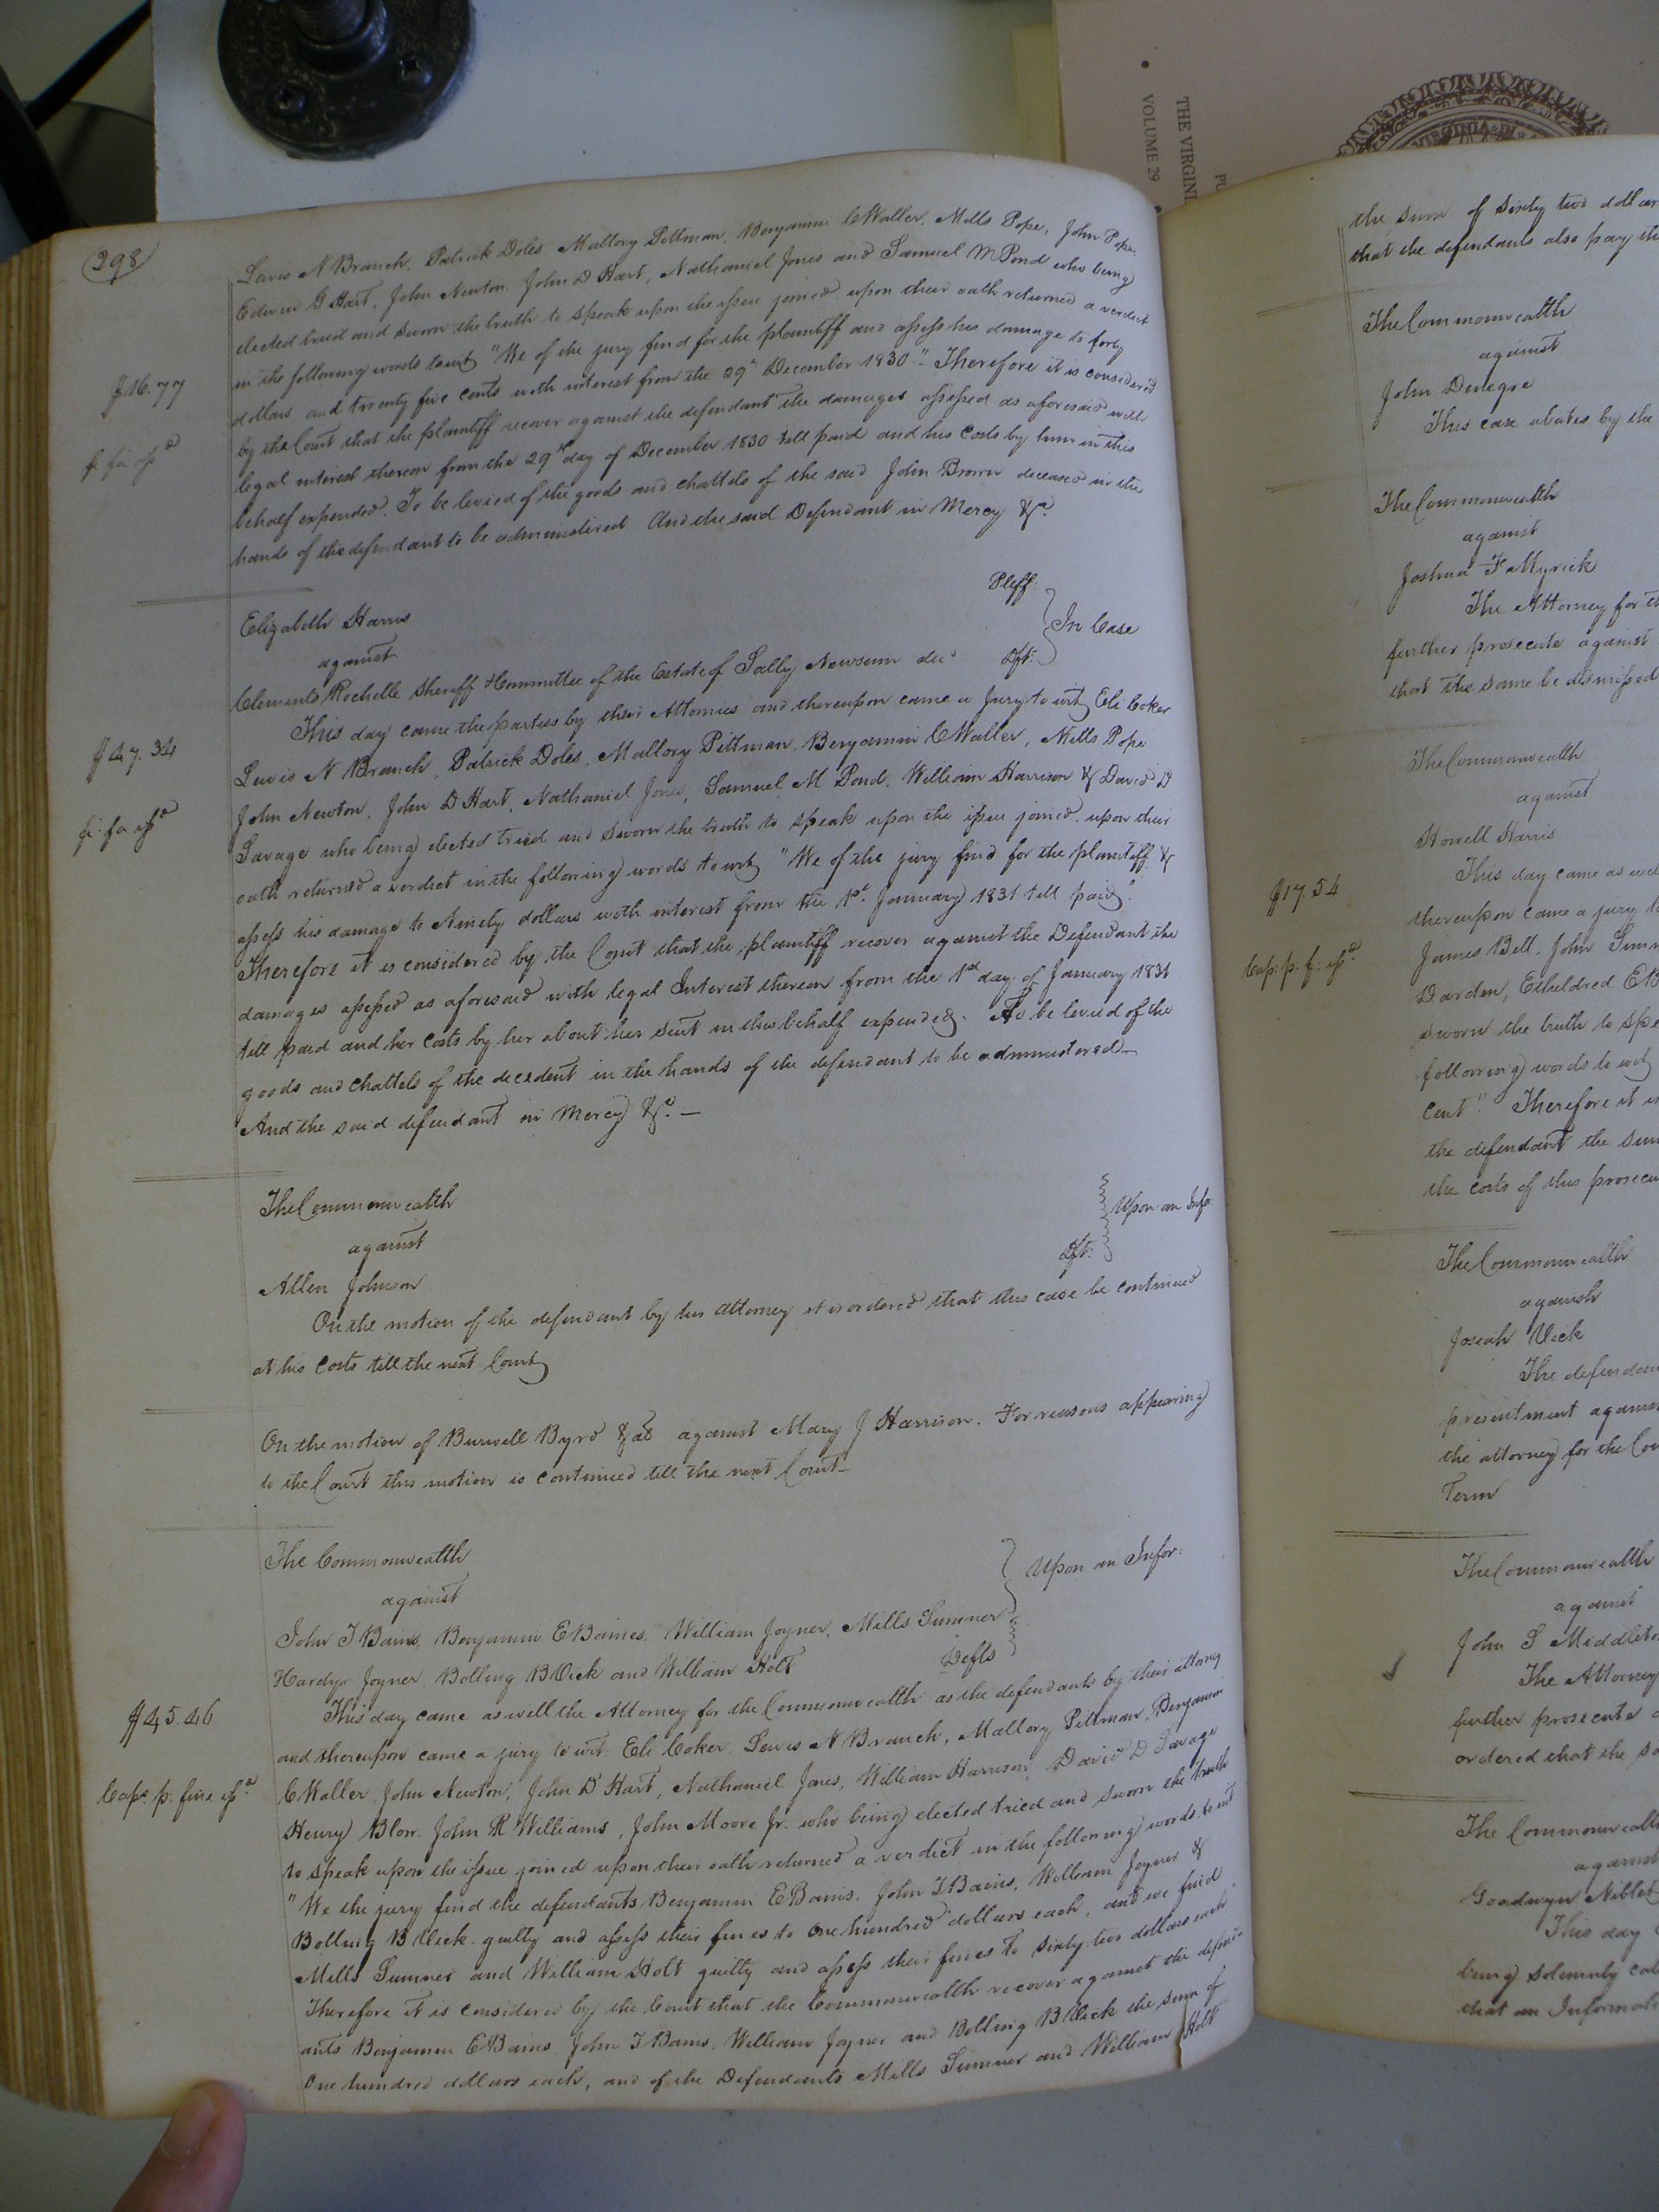 THE VIRGINI
VOLUME 29
298
Lewis N Branch, Patrick Doles, Mallory Pittman, Benjamin C Waller, Mills Pope, John Pope,
Edwin G Hart, John Newton, John D Hart, Nathaniel Jones and Samuel M Pond who being
elected tried and sworn the truth to speak upon the issue joined, upon their oath returned a verdict
in the following words towit "We of the jury find for the plaintiff and assess his damage to forty
$16.77
dollars and twenty five cents with interest from the 29th December 1830" Therefore it is considered
by the Court that the plaintiff recover against the defendant the damages assessed as aforesaid with
fi: fa: issd
legal interest thereon from the 29th day of December 1830 till paid and his Costs by him in this
behalf expended. To be levied of the goods and chattels of the said John Brown deceased in the
hands of the defendant to be administered And the said Defendant in Mercy &c.
Elizabeth Harris Pltff:
against In Case
Clements Rochelle Sheriff & Committee of the Estate of Sally Newsum decd Dft:
This day came the parties by their Attornies and thereupon came a Jury to wit, Eli Coker
$47.34
Lewis N Branch, Patrick Doles, Mallory Pittman, Benjamin C Waller, Mills Pope
John Newton, John D Hart, Nathaniel Jones, Samuel M Pond, William Harrison & David D
fi: fa issd
Savage who being elected tried and sworn the truth to speak upon the issue joined, upon their
oath returned a verdict in the following words to wit, "We of the jury find for the plaintiff &
assess his damage to Ninety dollars with interest from the 1st January 1831 till paid."
Therefore it is considered by the Court that the plaintiff recover against the Defendant the
damages assessed as aforesaid with legal Interest thereon from the 1st day of January 1831
till paid and her Costs by her about her suit in this behalf expended. To be levied of the
goods and chattels of the decedent in the hands of the defendant to be administered
And the said defendant in Mercy &c. —
The Commonwealth
against Upon an Info:
Allen Johnson Dft:
On the motion of the defendant by his attorney it is ordered that this case be continued
at his Costs till the next Court
On the motion of Burwell Byrd & against Mary J Harrison. For reasons appearing
to the Court this motion is continued till the next Court—
The Commonwealth
against Upon an Infor:
John T Bains, Benjamin E Baines, William Joyner, Mills Sumner
Hardy Joyner, Bolling B Vick and William Holt Defts
This day came as well the Attorney for the Commonwealth as the defendants by their attorney
$45.46
and thereupon came a jury to wit: Eli Coker, Lewis N Branch, Mallory Pittman, Benjamin
Caps: p: fine issd
C Waller, John Newton, John D Hart, Nathaniel Jones, William Harrison, David D Savage
Henry Blow, John R Williams, John Moore Jr. who being elected tried and sworn the truth
to speak upon the issue joined upon their oath returned a verdict in the following words, to wit
"We the jury find the defendants Benjamin E Bains, John T Bains, William Joyner &
Bolling B Vick guilty and assess their fines to One hundred dollars each, and we find
Mills Sumner and William Holt guilty and assess their fines to sixty two dollars each
Therefore it is considered by the Court that the Commonwealth recover against the defend-
ants Benjamin E Bains, John T Bains, William Joyner and Bolling B Vick the sum of
One hundred dollars each, and of the Defendants Mills Sumner and William Holt
the sum of sixty two dollars
that the defendants also pay the
The Commonwealth
against
John Denegre
This case abates by the
The Commonwealth
against
Joshua F Myrick
The Attorney for th
further prosecute against
that the same be dismissed
The Commonwealth
against
Howell Harris
This day came as well
$17.54
thereupon came a jury to
James Bell, John Simm
Cap: p. f: issd
Darden, Etheldred E B
sworn the truth to spe
following words to wit
Cent". Therefore it is
the defendant the sum
the costs of this prosecu
The Commonwealth
against
Josiah Vick
The defendan
presentment agains
the attorney for the Com
Term
The Commonwealth
against
John S Middleto
The Attorney
further prosecute a
ordered that the sa
The Commonwealth
against
Goodwyn Niblet
This day
being solemnly call
that an Informati